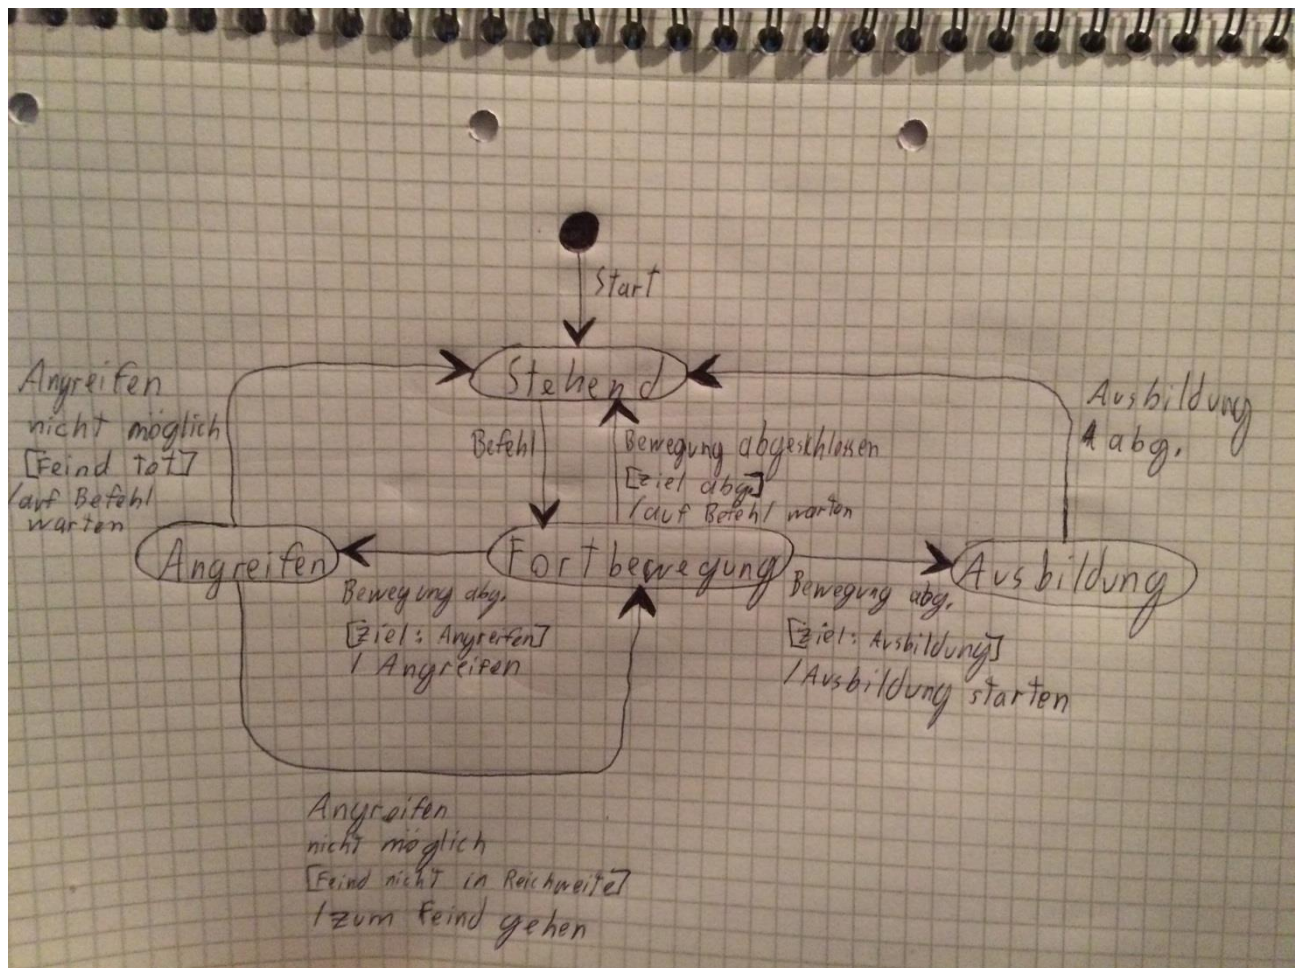 Start
Stehend
Angreifen
nicht möglich
[Feind tot]
/auf Befehl
warten
Befehl
Bewegung abgeschlossen
[Ziel abg.]
/auf Befehl warten
Ausbildung
abg.
Angreifen
Fortbewegung
Ausbildung
Bewegung abg.
[Ziel: Angreifen]
/ Angreifen
Bewegung abg.
[Ziel: Ausbildung]
/Ausbildung starten
Angreifen
nicht möglich
[Feind nicht in Reichweite]
/zum Feind gehen